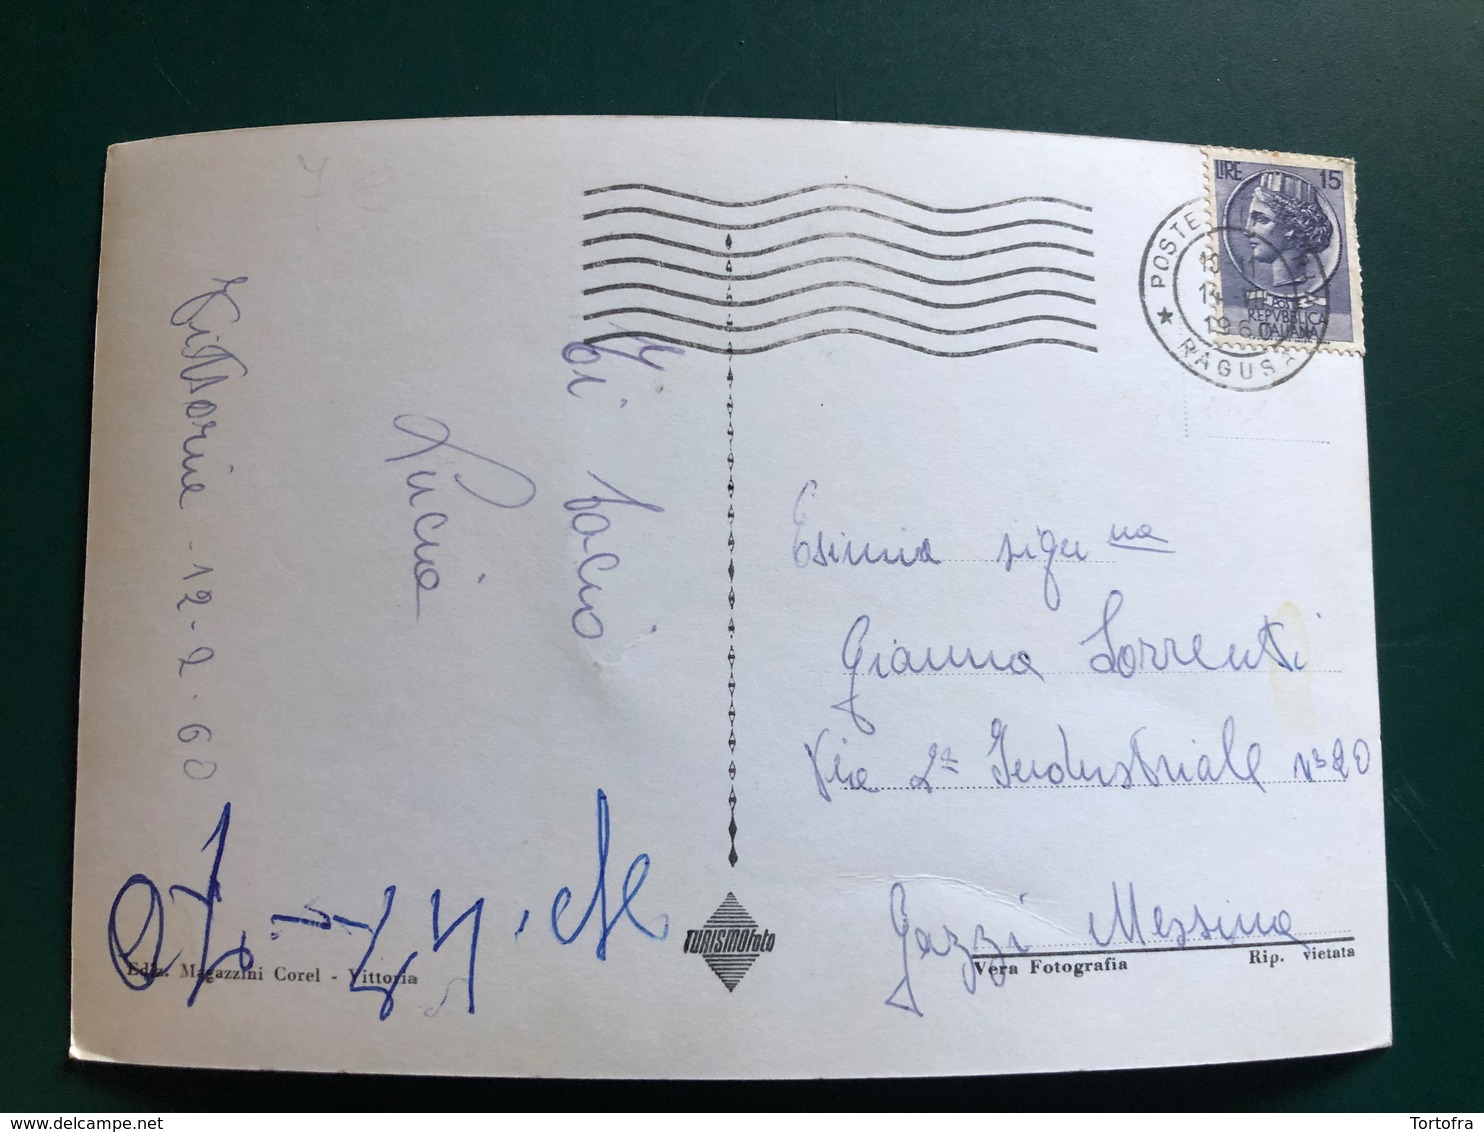 Vittoria - 12-2-60
Lucia
Ti bacio
Esimia sigu na
Gianna Sorrenti
Via 2a Industriale n° 20
Gazzi Messina
LIRE 15
POSTE
REPVBBLICA
ITALIANA
POSTE
RAGUSA
TURISMOfoto
Ediz. Magazzini Corel - Vittoria
Vera Fotografia
Rip. vietata
Tortofra